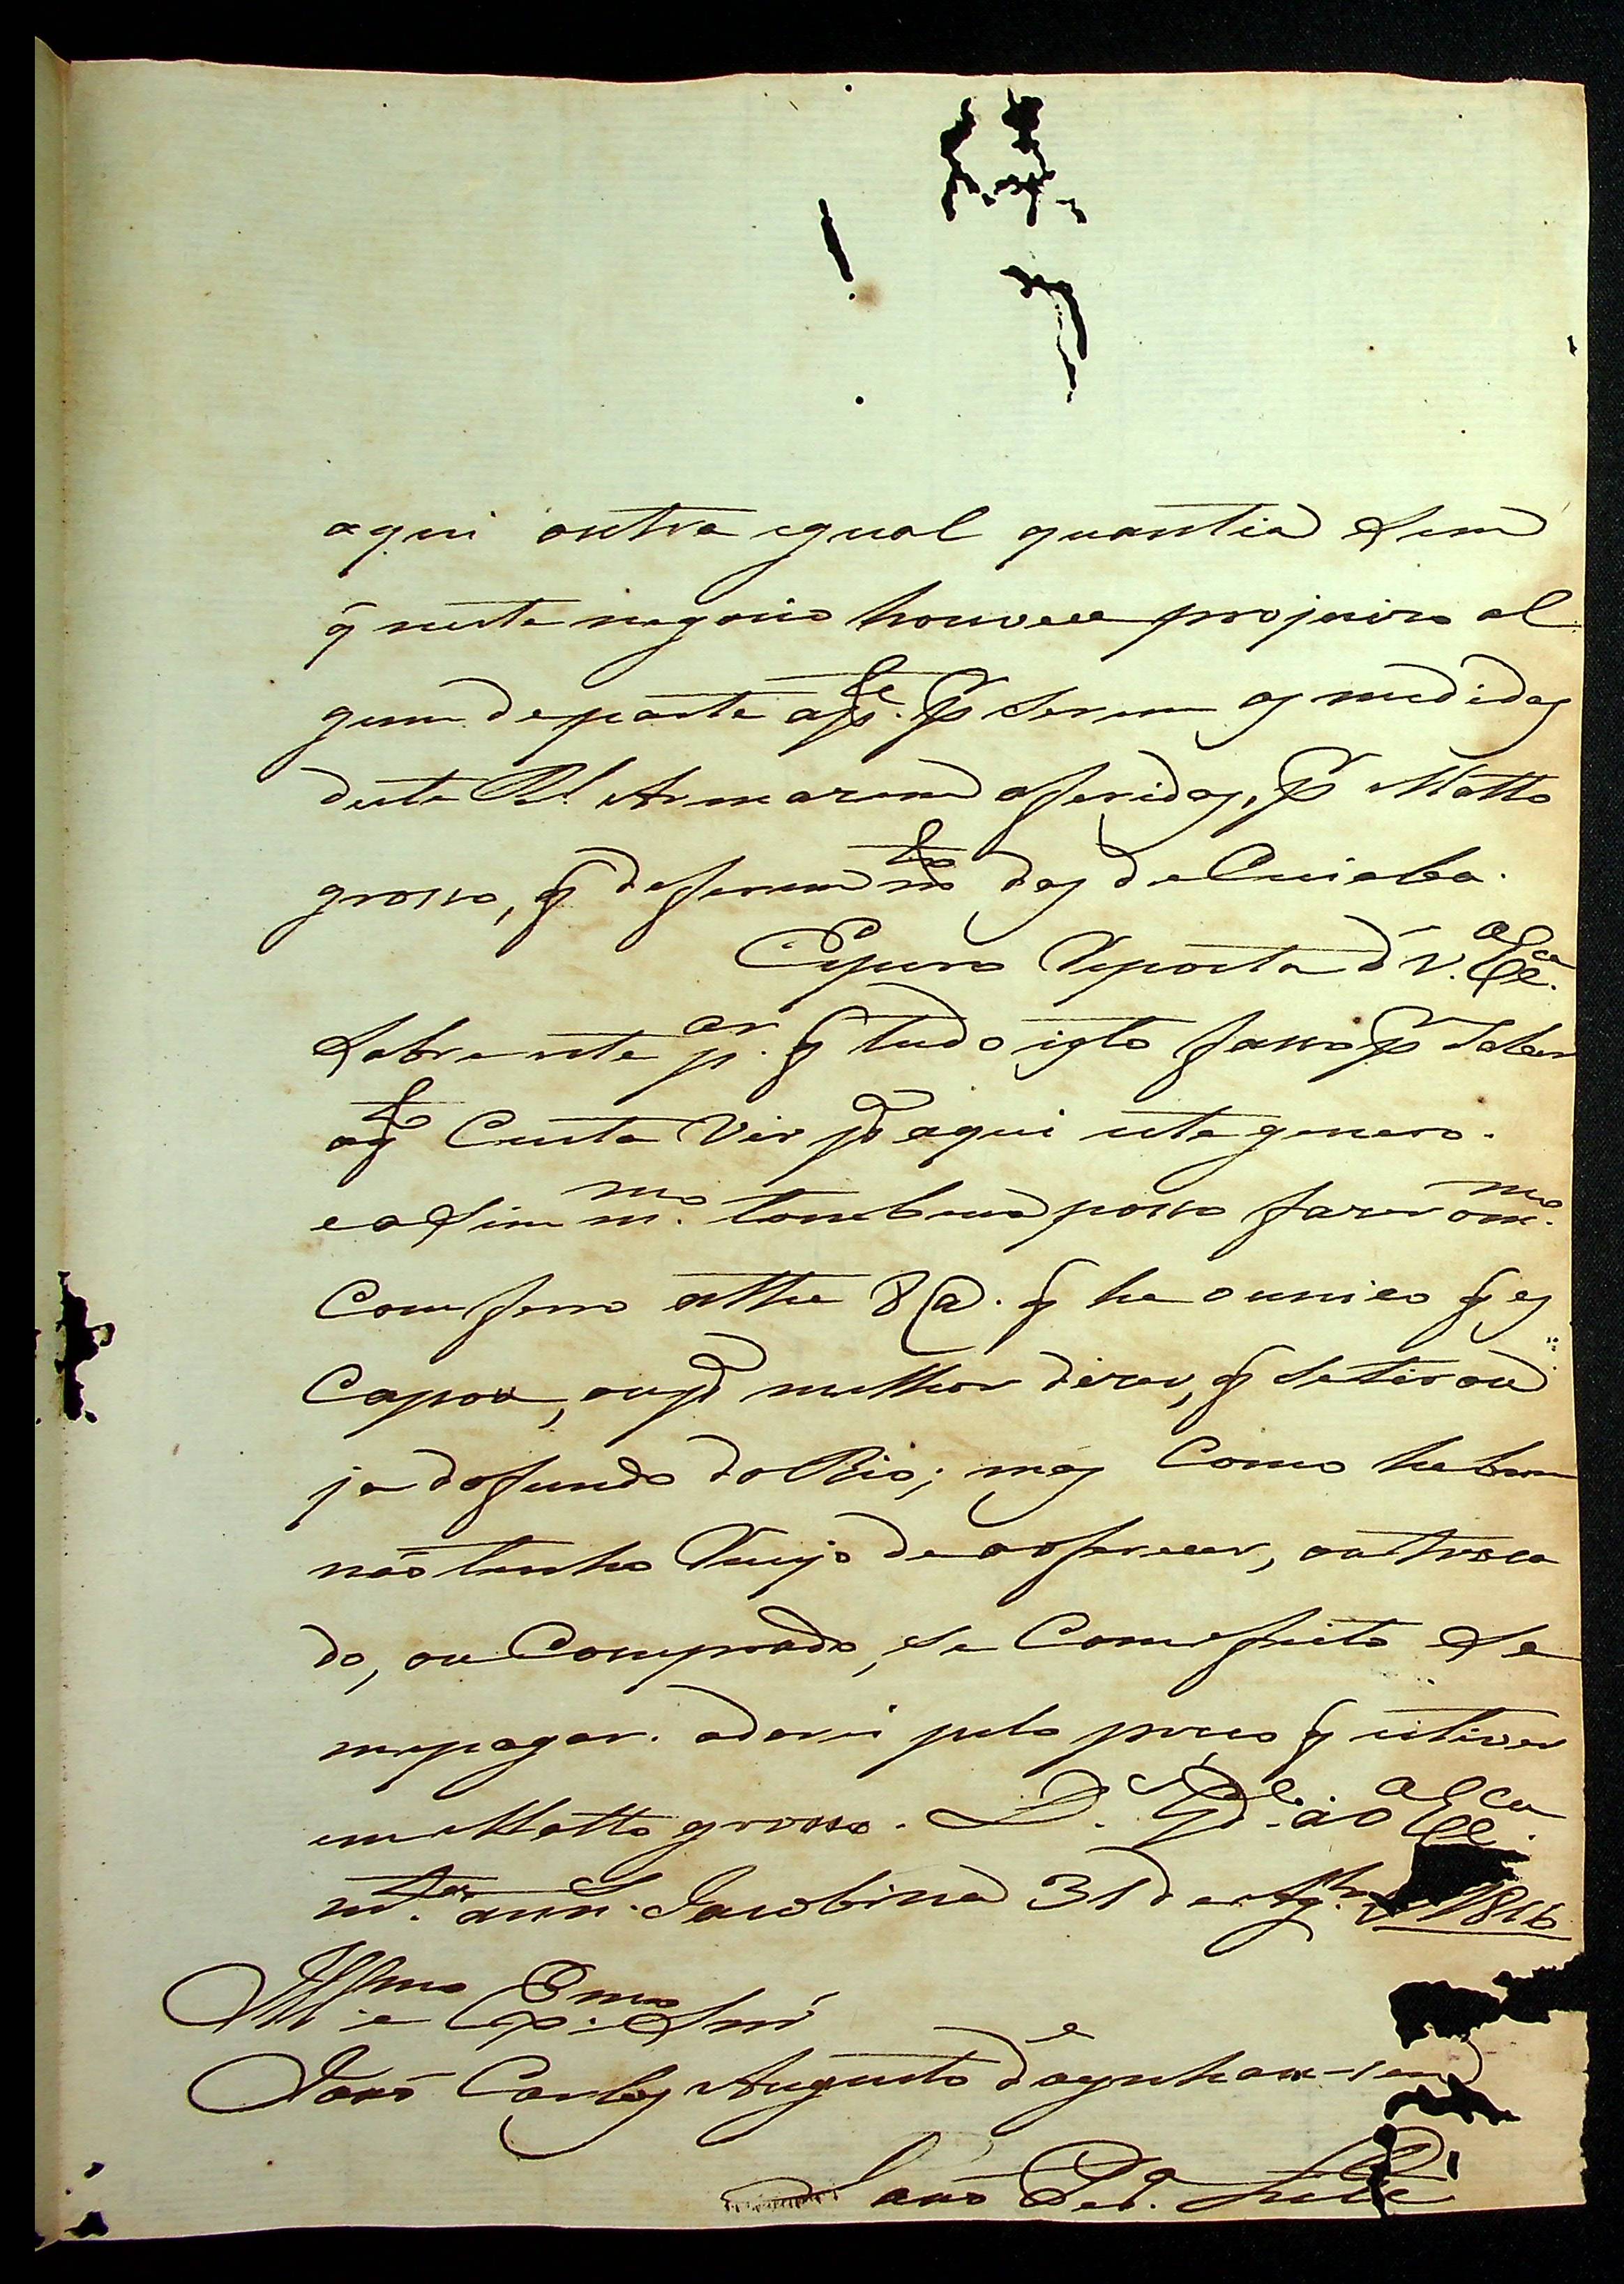 aqui outra igual quantia sem
q̃ neste negocio houvece projuizo al
gum departe apte. pr serem as medidas
deste Rl. Armazem aferidas, pr Matto
grosso, q̃ deferem mto das de Cuiaba.
Espero Reposta d V. Exca.
sobre este par. q̃ tudo isto fasso pr saber
oq̃ Custa Vir pa aqui este genero.
e asim mmo. tambem posso fazer omo.
Com ferro athe 8 @. q̃ he o unico q̃ es
Capou, ou pa melhor dizer, q̃ se tirou
ja do fundo do Rio; mas Como he bom
não tenho Pejo de o oferecer, ou troca
do, ou Comprado, se Com efeito se
me pagar. o darei pelo preco q̃ estiver
em Matto grosso. Ds. Gde. a V Exca.
ms. ans. Jacobina 31 de Agto. 1816
Illmo e Exmo. Snr̃
João Carlos Augusto d'Oeynhausen
João Per. Leite